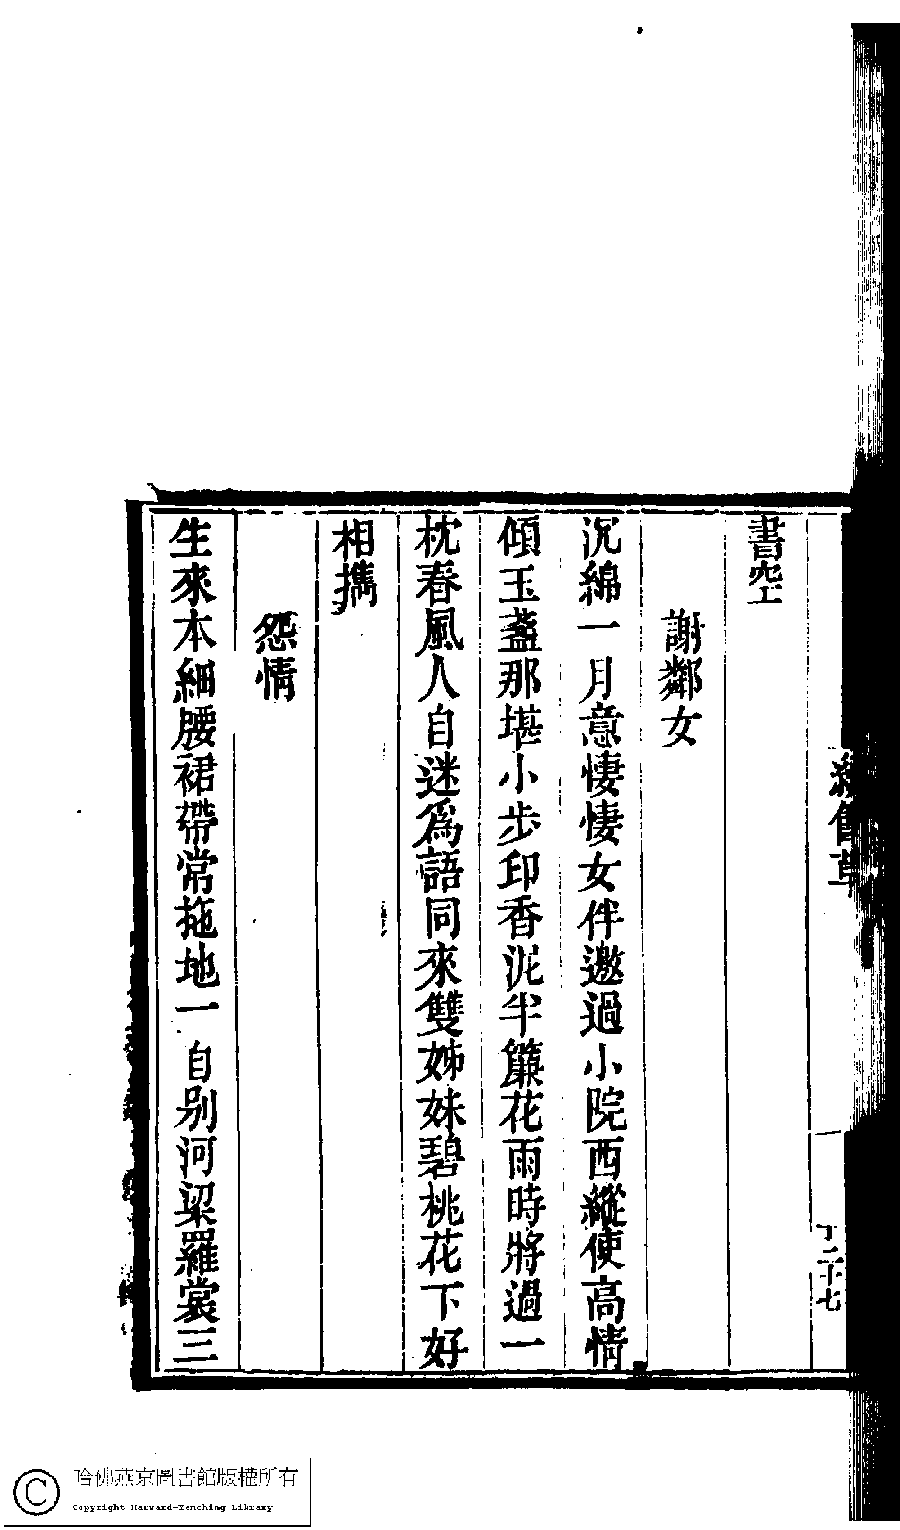 書空
謝鄰女
沉綿一月意悽悽女伴邀過小院西縱使高情
傾玉盞那堪小步印香泥半簾花雨時將過一
枕春風人自迷爲語同來雙姊妹碧桃花下好
相攜
怨情
生來本細腰裙帶常拖地一自別河梁羅裳三
二十七
哈佛燕京圖書館版權所有
Copyright Harvard-Yenching Library